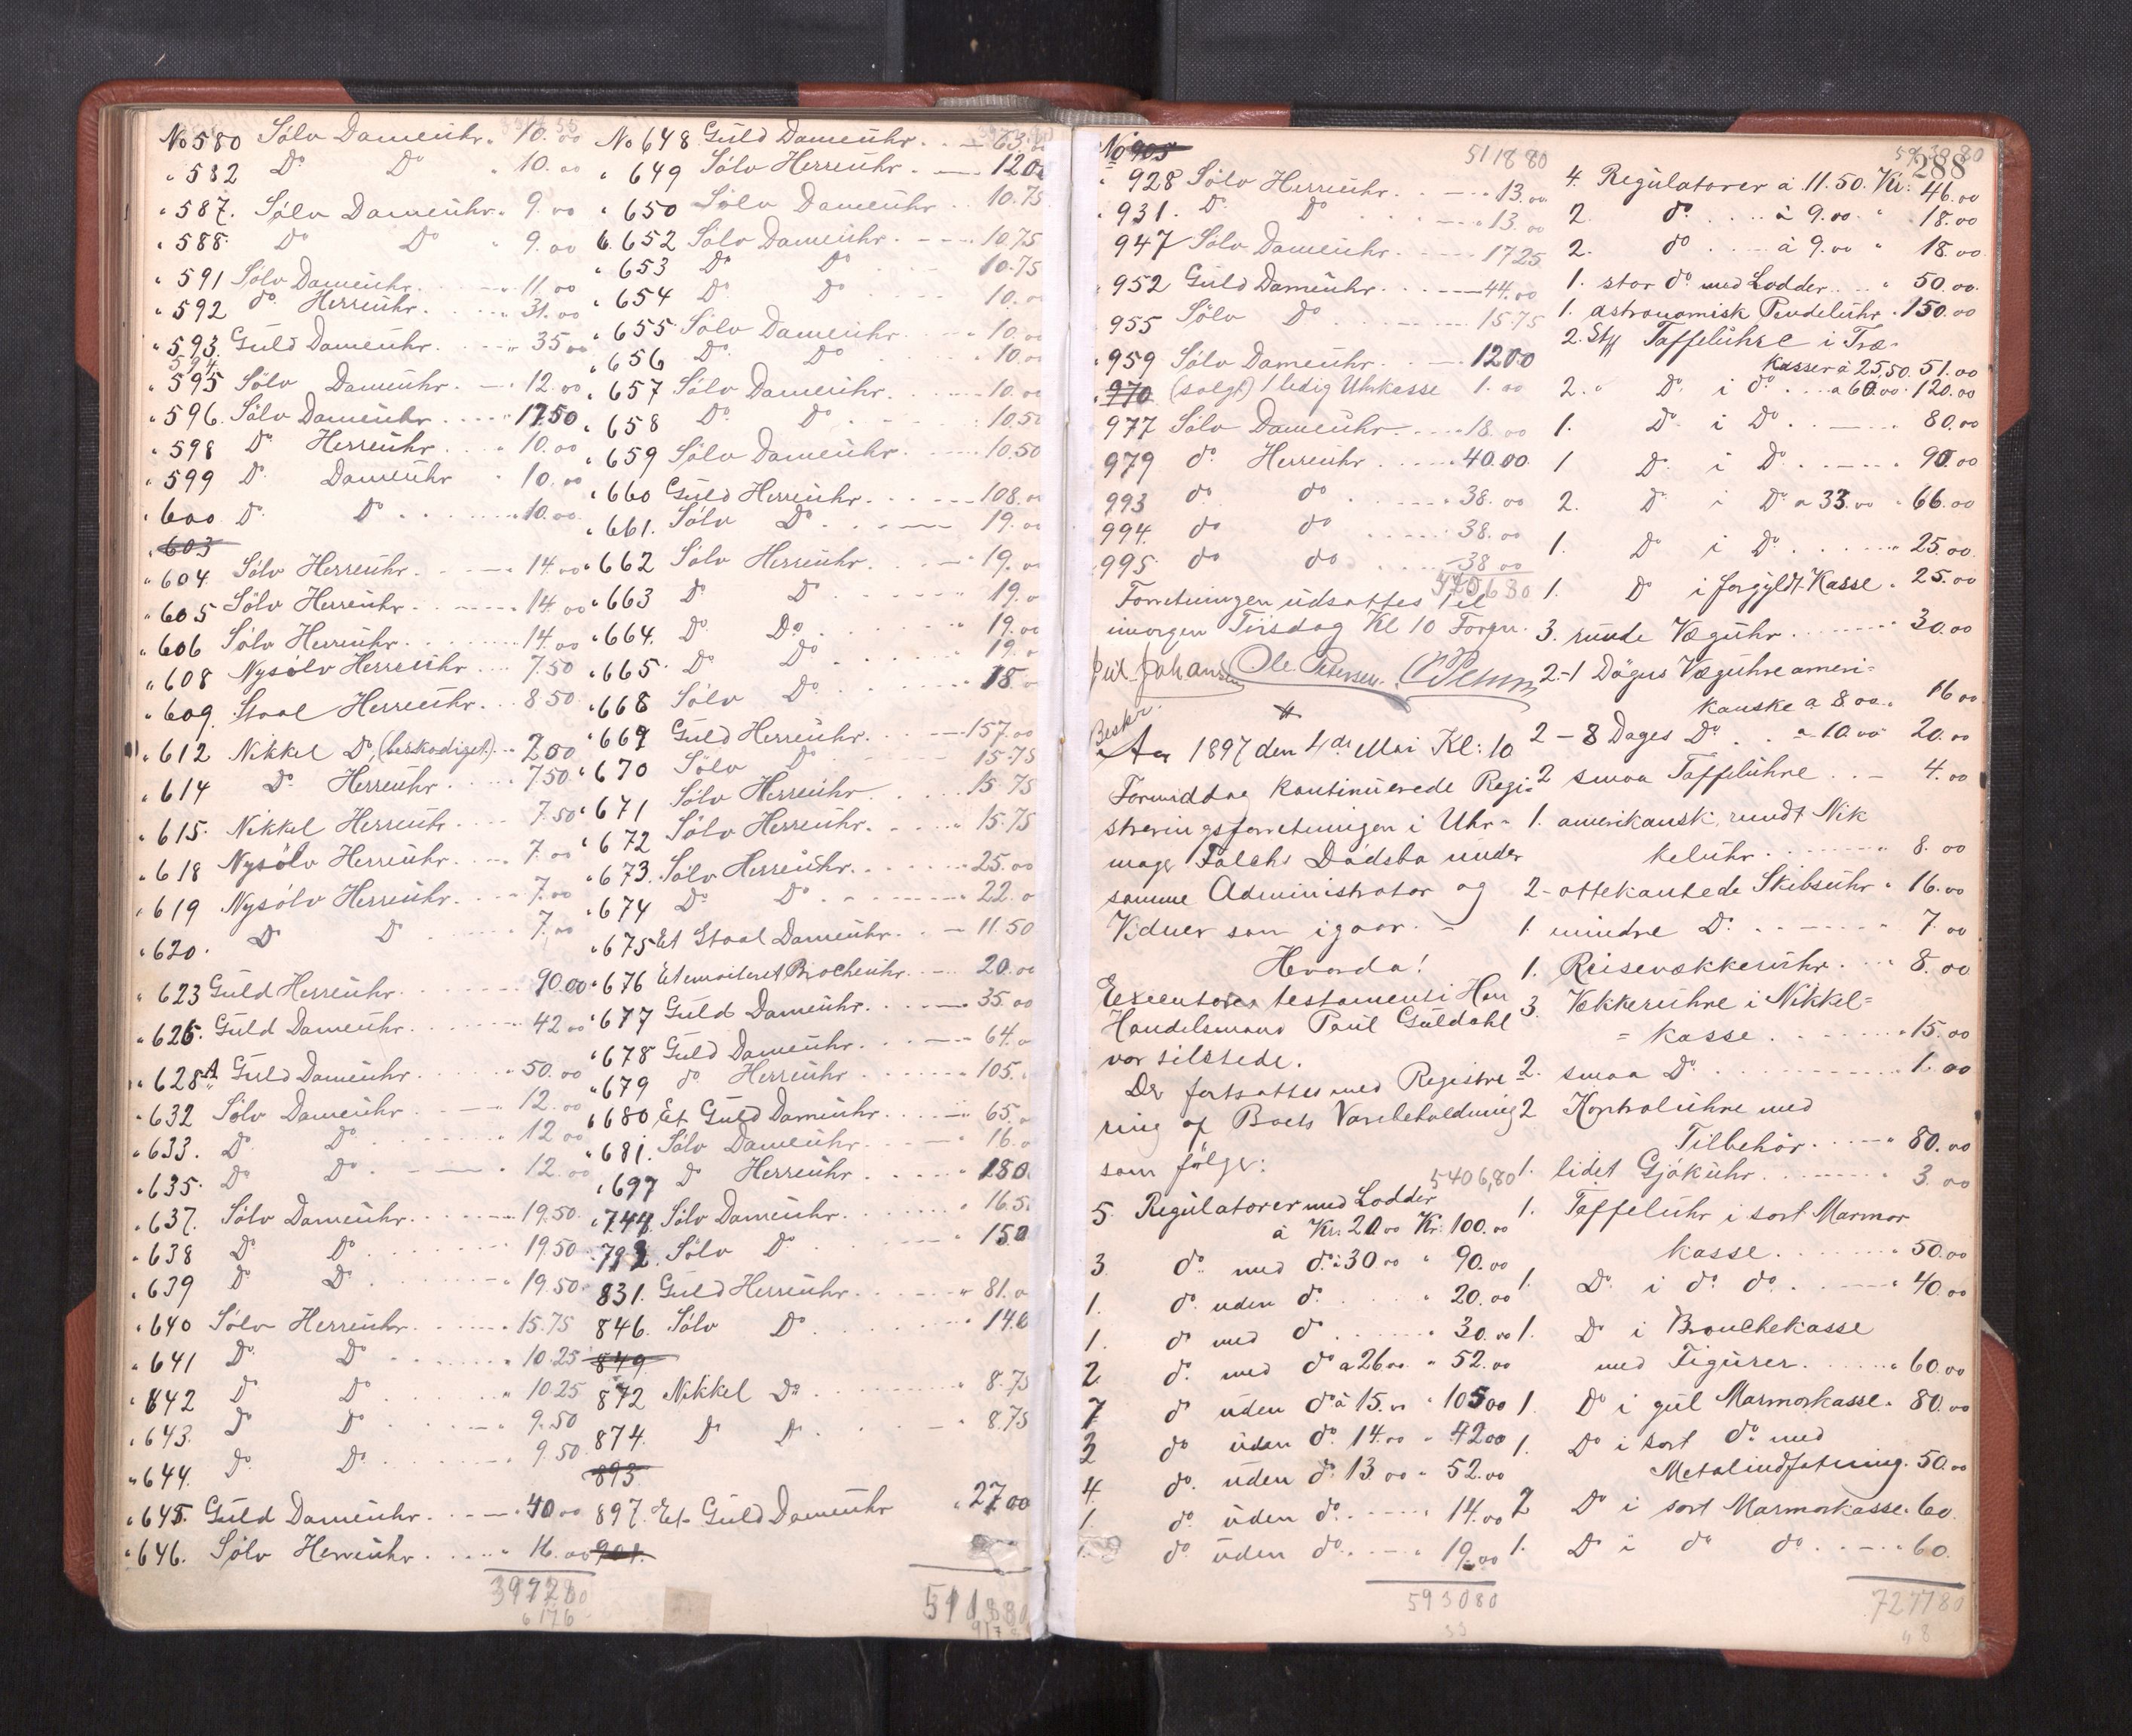 No 580 Sölv Dameuhr. 10.00
" 582 Do Do " 10.00
" 587. Sölv Dameuhr. 9.00
" 588. Do Do " 9.00
" 591 Sölv Dameuhr. 11.00
" 592 do Herreuhr. 31.00
" 593. Guld Dameuhr. 35.00
594
" 595 Sölv Dameuhr. 12.00
" 596. Sölv Dameuhr. 17.50
" 598 Do Herreuhr 10.00
" 599 Do Dameuhr 10.00
" 600 Do Do 10.00
" 603
" 604 Sölv Herreuhr. 14.00
" 605 Sölv Herreuhr. 14.00
" 606 Sölv Herreuhr. 14.00
" 608 Nysölv Herreuhr 7.50
" 609. Staal Herreuhr. 8.50
" 612 Nikkel Do (beskadiget) 2.00
" 614 Do Herreuhr. 7.50
" 615. Nikkel Herreuhr. 7.50
" 618 Nysölv Herreuhr. 7.00
" 619 Nysölv Herreuhr. 7.00
" 620. Do Do 7.00
" 623 Guld Herreuhr. 90.00
" 626. Guld Dameuhr. 42.00
" 628A. Guld Dameuhr. 50.00
" 632 Sölv Dameuhr. 12.00
" 633. Do Do 12.00
" 635. Do Do 12.00
" 637. Sölv Dameuhr. 19.50
" 638 Do Do 19.50
" 639 Do Do 19.50
" 640 Sölv Herreuhr. 15.75
" 641 Do Do 10.25
" 642 Do Do 10.25
" 643. Do Do 9.50
" 644. Do Do 9.50
" 645. Guld Dameuhr. 40.00
" 646. Sölv Herreuhr. 16.00
6176
No 648 Guld Dameuhr. 63.00
" 649 Sölv Herreuhr. 12.00
" 650 Sölv Dameuhr 10.75
" 652 Sölv Dameuhr. 10.75
" 653 Do Do 10.75
" 654 Do Do 10.00
" 655 Sölv Dameuhr. 10.00
" 656 Do Do 10.00
" 657 Sölv Dameuhr. 10.00
" 658 Do Do 10.50
" 659 Sölv Dameuhr. 10.50
" 660 Guld Herreuhr. 108.00
" 661. Sölv Do 19.00
" 662 Sölv Herreuhr. 19.00
" 663 Do Do 19.0
" 664. Do Do 19.00
" 665. Do Do 19.0
" 668 Sölv Do 18.0
" 669 Guld Herreuhr. 157.00
" 670 Sölv Do 15.75
" 671 Sölv Herreuhr 15.75
" 672 Sölv Herreuhr. 15.75
" 673. Sölv Herreuhr. 25.00
" 674 Do Do 22.0
" 675 Et Staal Dameuhr. 11.50
" 676 Et emaileret Brocheuhr. 20.00
" 677 Guld Dameuhr. 35.00
" 678 Guld Dameuhr. 64.0
" 679 do Herreuhr 105.
" 680 Et Guld Dameuhr. 65.0
" 681. Sölv Dameuhr. 16.0
" 697 Do Herreuhr. 180.
" 744 Sölv Dameuhr. 16.5
Sölv Do 15.0
831. Guld Herreuhr. 81.0
846. Sölv Do 14.0
849
872 Nikkel Do 8.75
874. Do Do 8.75
893
897. Et Guld Dameuhr 27.00
901.
511880
No 905 511880
" 928 Sölv Herreuhr. 13.00
" 931. Do Do 13.00
947 Sölv Dameuhr. 17.25
" 952 Guld Dameuhr. 44.00
955 Sölv Do 15.75
" 959 Sölv Dameuhr. 12.00
970 (solgt) 1 ledig Uhrkasse 1.00
977 Sölv Dameuhr. 18.00
979 do Herreuhr. 40.00
993 do do 38.00
994. do do 38.00
995. do do 38.00
Forretningen udsattes til
imorgen Tirsdag Kl 10 Form.
Jul. Johansen Ole Petersen.
Aar 1897 den 4de Mai Kl: 10
Formiddag kontinuerede Regi-
streringsforretningen i Uhr-
mager Falchs Dödsbo under
samme Administrator og
Vidner som igaar. -
Hvorda!
Executores testamenti Herr
Handelsmand Paul Guldahl
var tilstede.
Der fortsattes med Registre-
ring af Boets Varebeholdning
som fölger: 5406,80
5. Regulatorer med Lodder
à Kr. 20.00 Kr. 100.00
3. do med do à 30.00 " 90.00
1. do uden do " 20.00
1. do med do " 30.00
2 do med do a 26.00 " 52.00
7 do uden do à 15.00 " 105.00
3 do uden do 14.00 " 42.00
4. do uden do 13.00 " 52.00
1. do uden do 14.00
1. do uden do " 19.00
593080
593080
288
4. Regulatorer à 11.50. Kr. 46.00
2. do à 9.00 " 18.00
2. do à 9.00 " 18.00
1. stor do med Lodder " 50.00
1. astronomisk Pendeluhr 150.00
2. Stk Taffeluhre i Træ-
kasser à 25,50. 51.00
2. " Do i do a 60.00 120.00
1. Do i Do 80.00
1 Do i Do 90.00
2. Do i Do a 33.00 " 66.00
1. Do i Do 25.00
1. Do i forgyldt Kasse " 25.00
3. runde Væguhr 30.00
2.-1 Dögns Væguhre ameri-
kanske a 8.00. 16.00
2 - 8 Dages Do a 10.00 20.00
2 smaa Taffeluhre 4.00
1. amerikansk rundt Nik
keluhr. " 8.00
2- ottekantede Skibsuhr " 16.00
1. mindre Do " 7.00
1. Reisevækkeruhr. 8.00
3. Vækkeruhre i Nikkel=
= kasse " 15.00
2. smaa Do 1.00
2 Kontroluhre med
Tilbehör. " 80.00
1. lidet Gjökuhr. 3.00
1. Taffeluhr i sort Marmor
kasse. " 50.00
1. Do i do do " 40.00
1. Do i Bronchekasse
med Figurer. " 60.00
1. Do i gul Marmorkasse. 80.00
1. Do i sort do med
Metalindfatning. 50.00
2 Do i sort Marmorkasse. 60.
1. Do i do do " 60.
727780